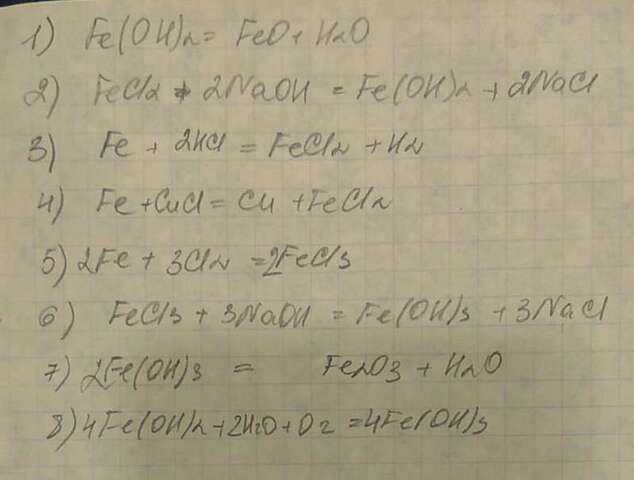 1) Fe(OH)2 = FeO + H2O
2) FeCl2 + 2NaOH = Fe(OH)2 + 2NaCl
3) Fe + 2HCl = FeCl2 + H2
4) Fe + CuCl = Cu + FeCl2
5) 2Fe + 3Cl2 = 2FeCl3
6) FeCl3 + 3NaOH = Fe(OH)3 + 3NaCl
7) 2Fe(OH)3 = Fe2O3 + H2O
8) 4Fe(OH)2 + 2H2O + O2 = 4Fe(OH)3